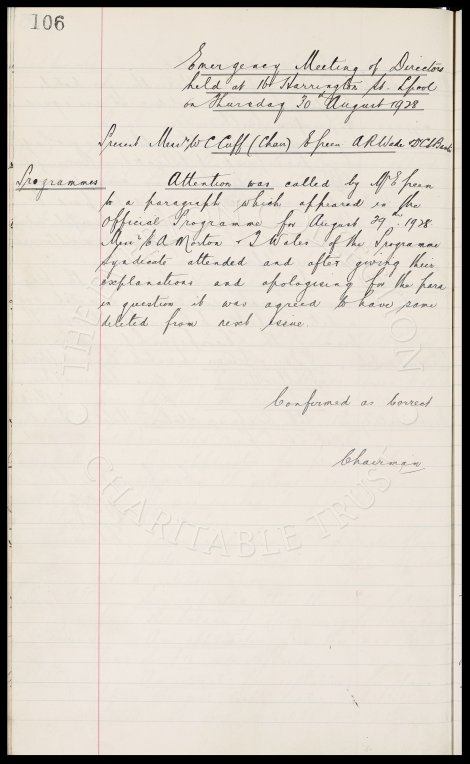 106
Emergency Meeting of Directors
held at 16 Harrington St. Lpool
on Thursday 30th August 1928
Present Messrs W C Cuff (Chair) E Green A R Wade & D C L Banks
Programmes Attention was called by Mr E Green
to a paragraph which appeared in the
Official Programme for August 29th. 1928
Messrs C A Morton & Wales of the Programme
Syndicate attended and after giving their
explanations and apologising for the para
in question it was agreed to have same
deleted from next issue.
Confirmed as Correct
Chairman
CHARITABLE TRUST